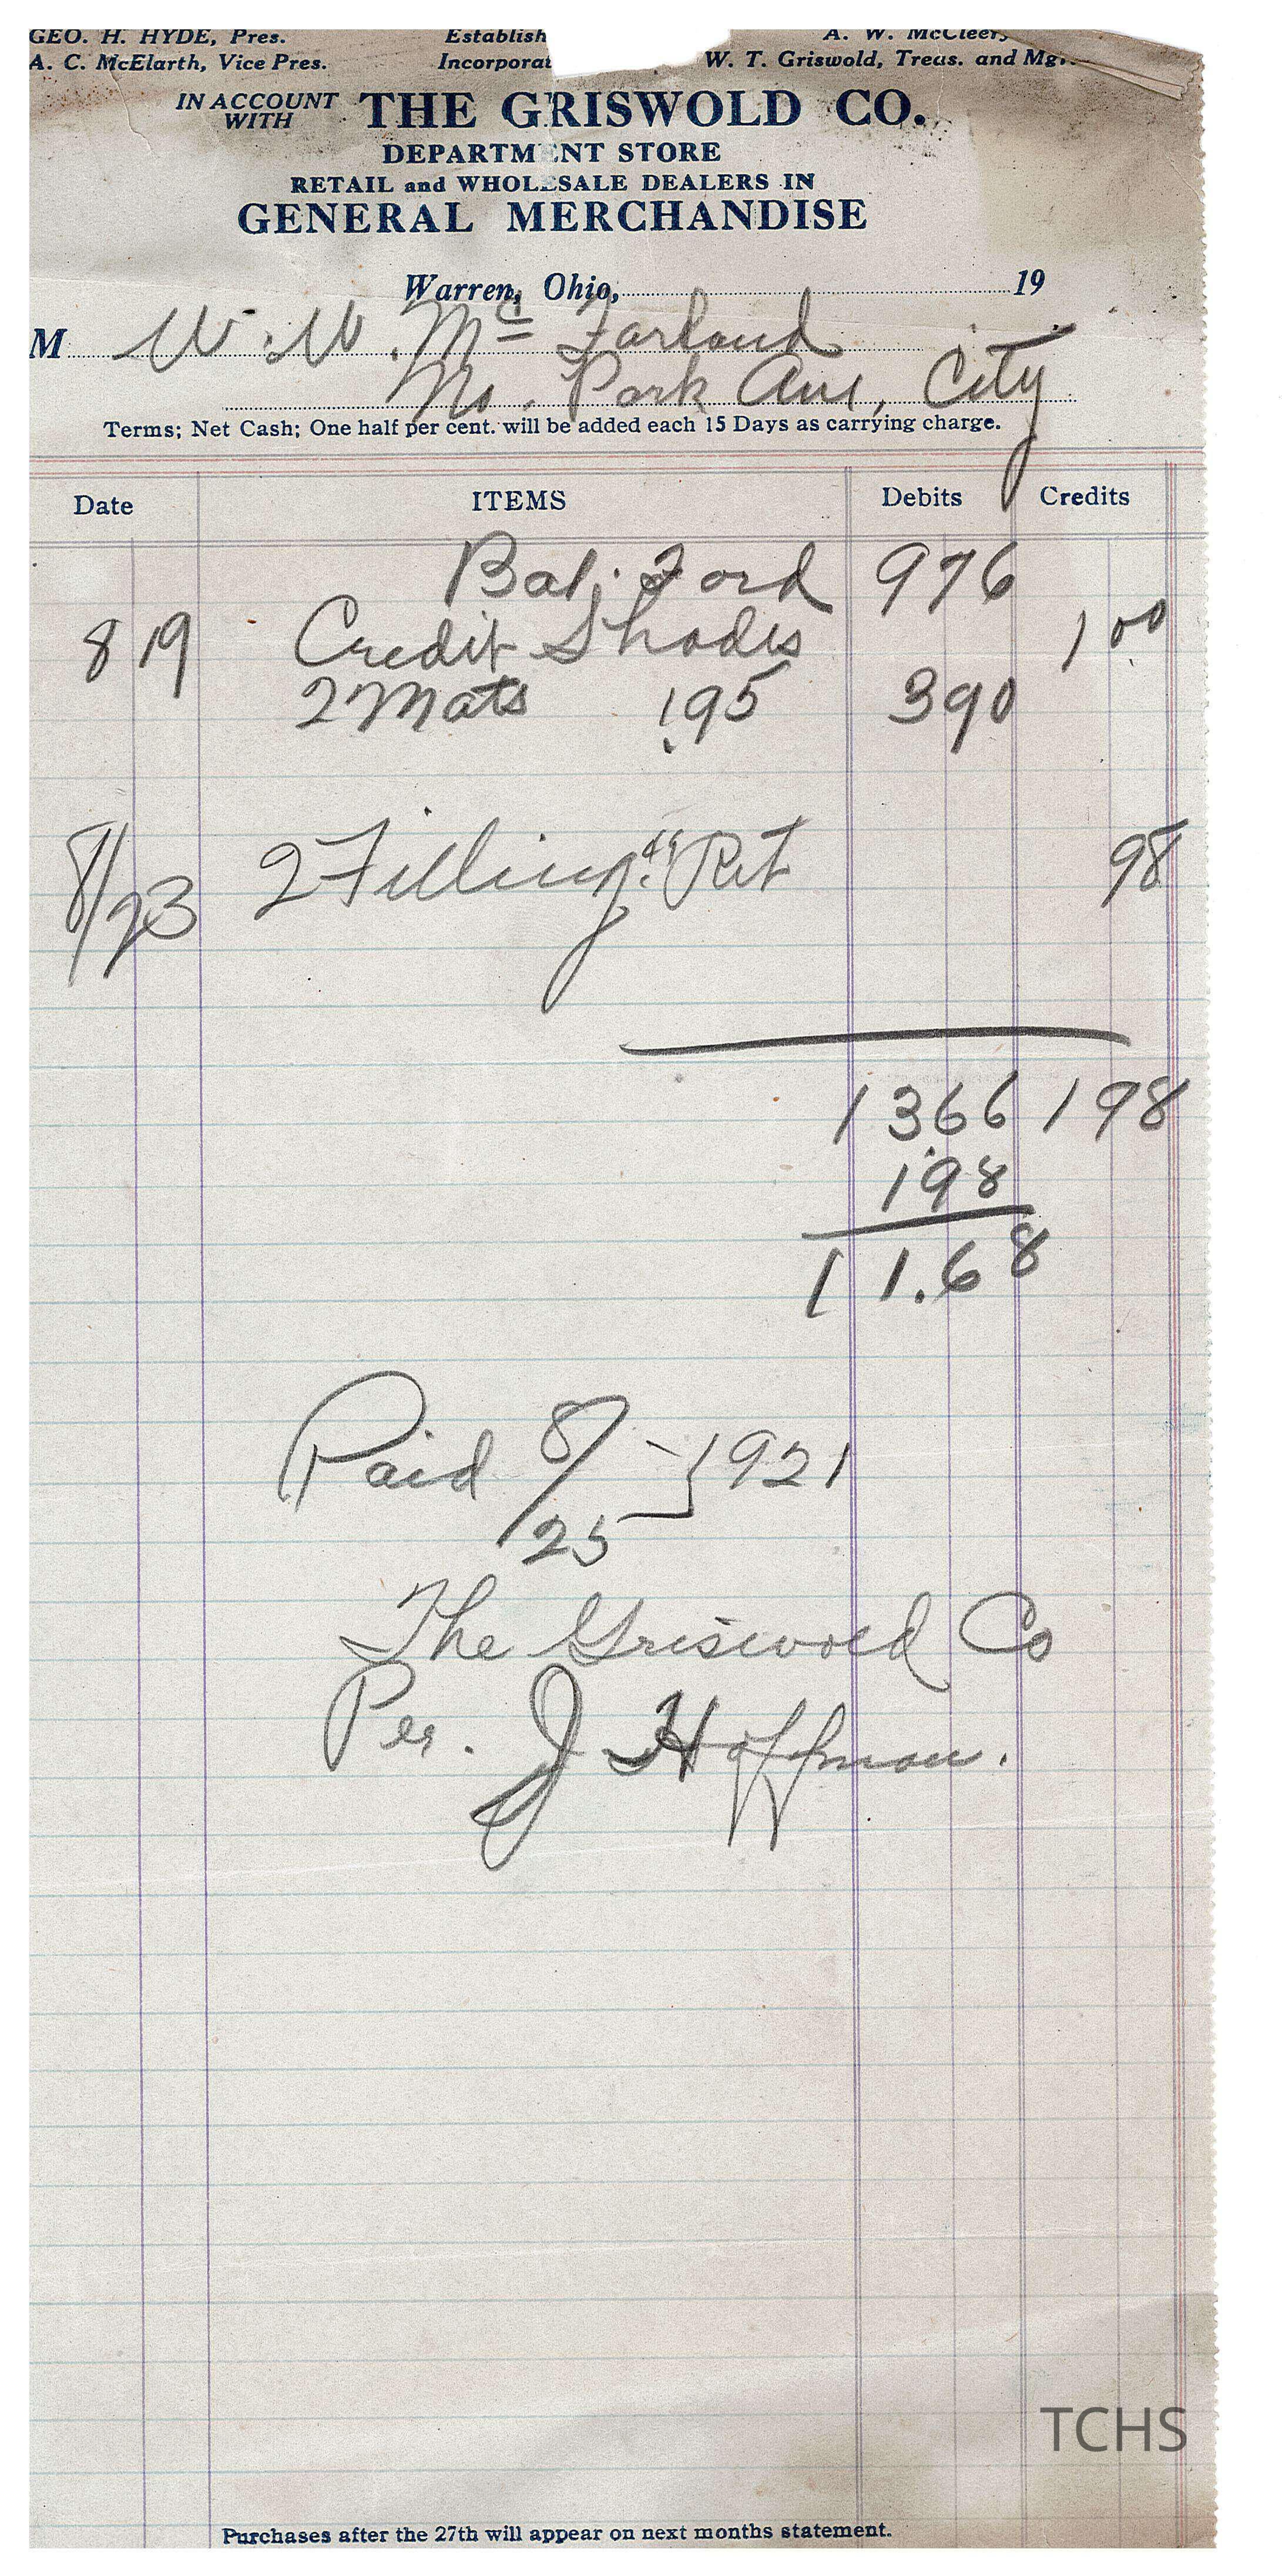 GEO. H. HYDE, Pres. Establish A. W. McCleery
A. C. McElarth, Vice Pres. Incorporat W. T. Griswold, Treas. and Mgr.
IN ACCOUNT WITH THE GRISWOLD CO.
DEPARTMENT STORE
RETAIL and WHOLESALE DEALERS IN
GENERAL MERCHANDISE
Warren, Ohio, 19
M W. W. Mc Farland
No. Park Ave, City
Terms; Net Cash; One half per cent. will be added each 15 Days as carrying charge.
Date ITEMS Debits Credits
Bal. Ford 976
8 19 Credit Shades 1 00
2 Mats 195 390
8/23 2 Filling Ret 98
1366 198
198
11.68
Paid 8/25 } 1921
The Griswold Co
Per. J Hoffman.
TCHS
Purchases after the 27th will appear on next months statement.